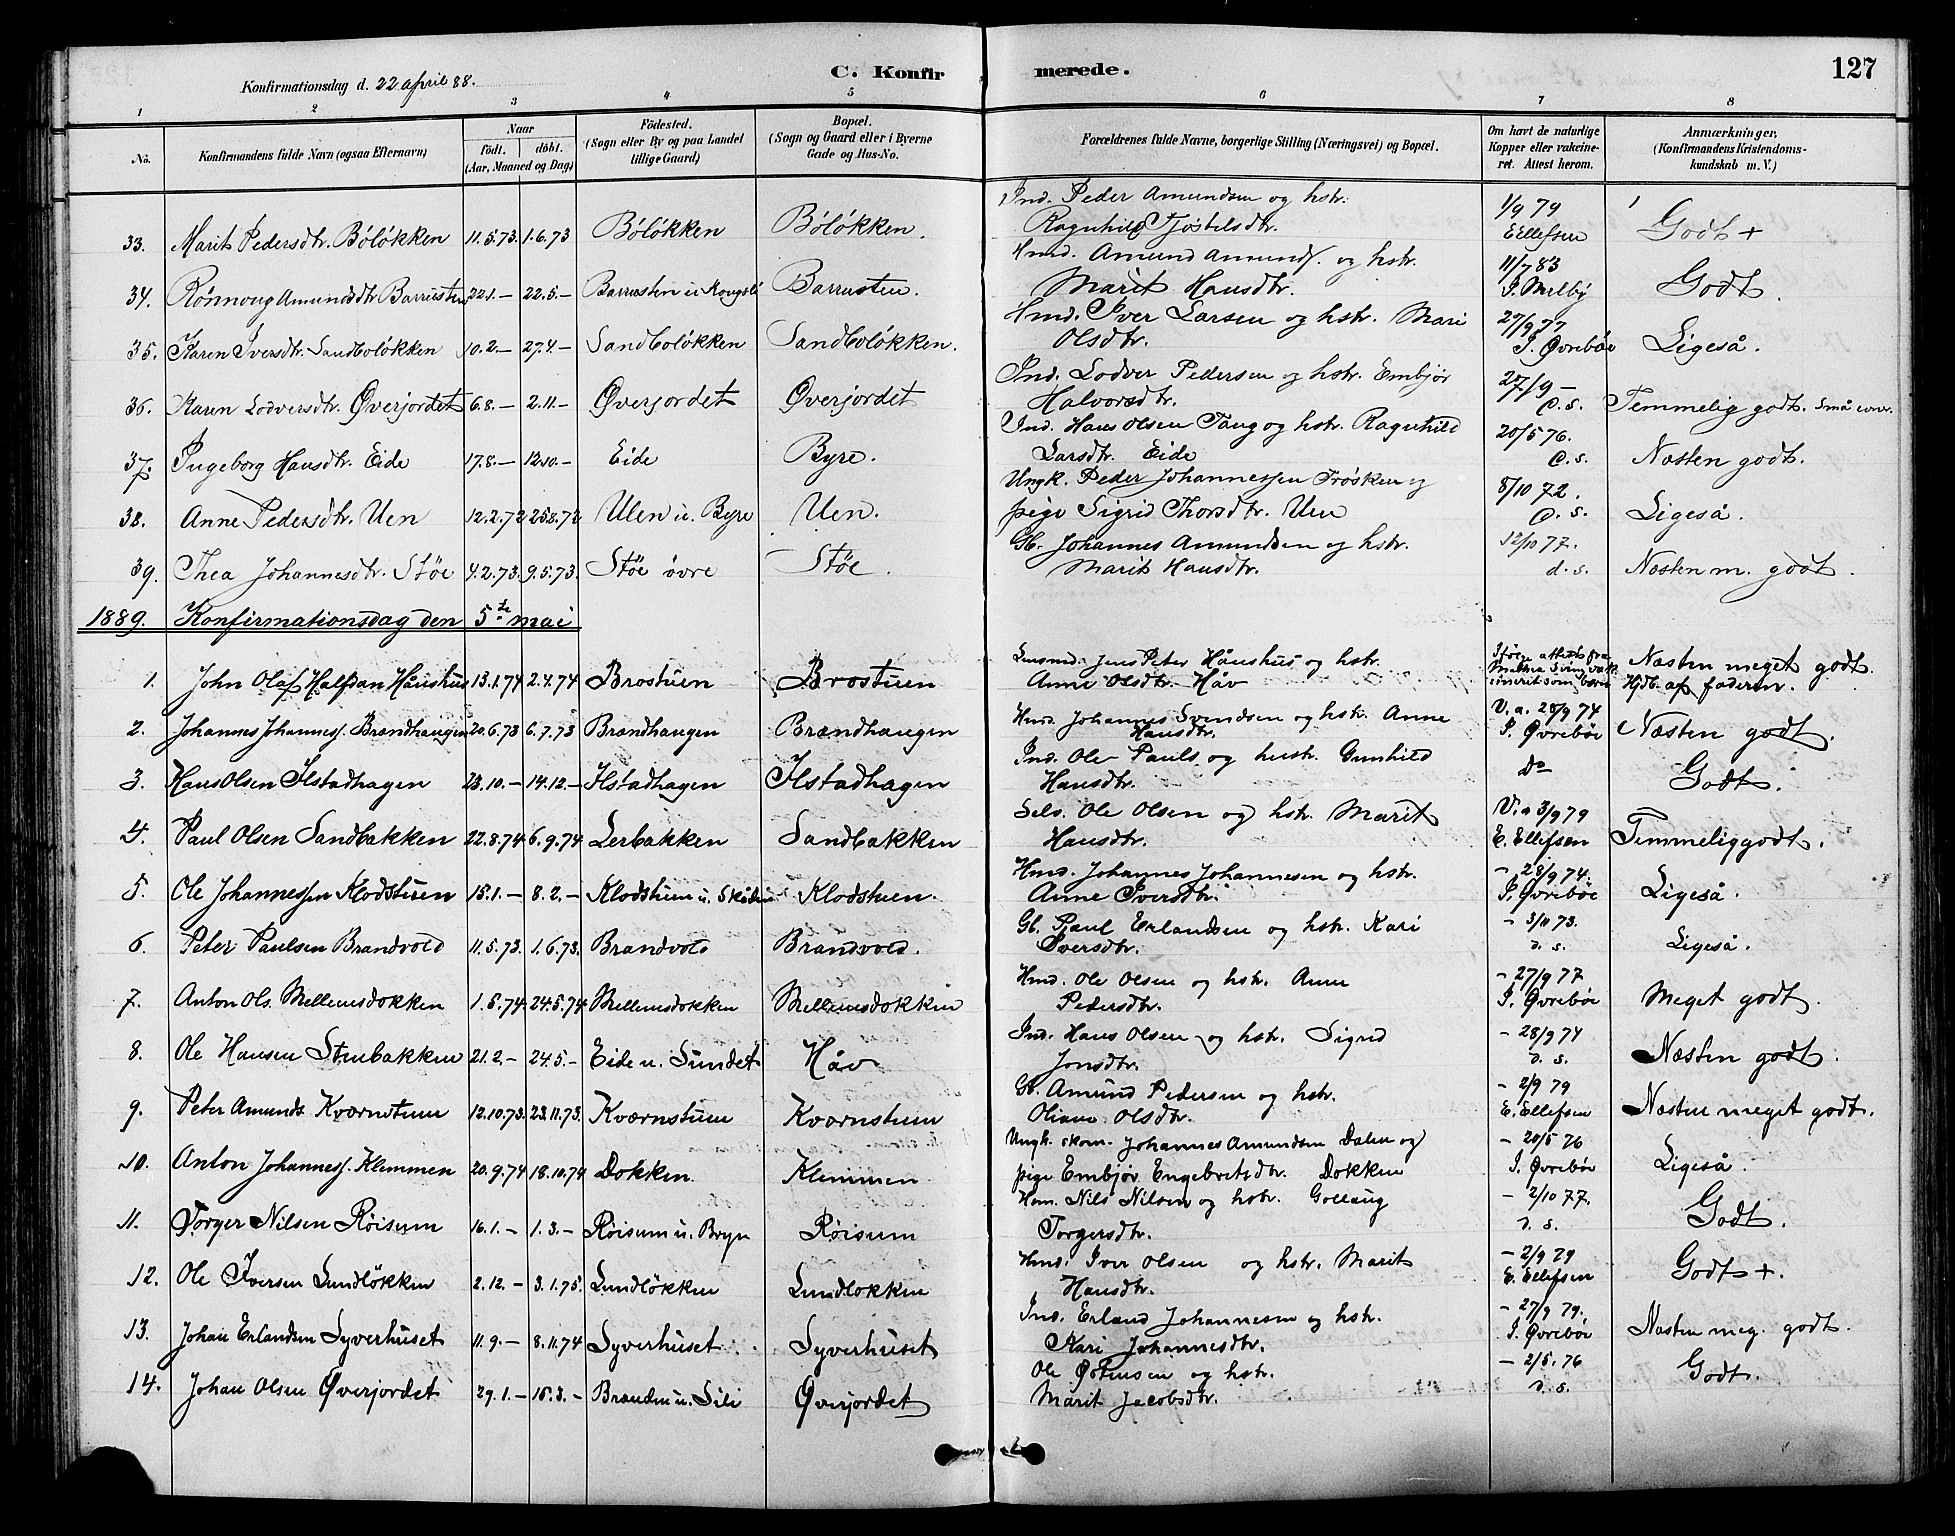 Konfirmationsdag d. 22 april 88.
C. Konfirmerede.
127
1 2 3 4 5 6 7 8
No.
Konfirmandens fulde Navn (ogsaa Efternavn)
Naar
födt. döbt.
(Aar, Maaned og Dag)
Födested.
(Sogn eller By og paa Landet
tillige Gaard)
Bopæl.
(Sogn og Gaard eller i Byerne
Gade og Hus-No.
Forældrenes fulde Navne, borgerlige Stilling (Næringsvei) og Bopæl.
Om havt de naturlige
Kopper eller vakcine-
ret. Attest herom.
Anmærkninger.
(Konfirmandens Kristendoms-
kundskab m. V.)
33. Marit Pedersdtr. Bölökken 11.5.73. 1.6.73 Bölökken Bölökken. Ind. Peder Amundsen og hstr. 1/9 79 Godt +
Ragnhild Tjöstelsdtr. E Ellefsen
34. Rönnoug Amundsdtr Barrusten 22.1.– 22.5.– Barrusten u. Kongsli Barrusten. Hmd. Amund Amunds. og hstr. 11/7 83 Godt.
Marit Hansdtr. J. Melby
35. Karen Iversdtr. Sandbolökken 10.2.– 27.4.– Sandbolökken Sandbolökken. Hmd. Iver Larsen og hstr. Mari 27/9 77 Ligeså.
Olsdtr. I. Øvrebøe
36. Karen Lodversdtr. Øverjordet 6.8.– 2.11.– Øverjordet Øverjordet Ind. Lodver Pedersen og hstr. Embjör 27/9 – Temmelig godt. Små
Halvorsdtr. d. s.
37. Ingeborg Hansdtr. Eide 17.8.– 12.10.– Eide Byre. Ind. Hans Olsen Taug og hstr. Ragnhild 20/5 76. Næsten godt.
Larsdtr. Eide d. s.
38. Anne Pedersdtr. Uen 12.2.72 25.8.72 Ulen u. Byre Uen. Ungk. Peder Johannessen Trösken og 8/10 72. Ligeså.
pige Sigrid Thorsdtr. Uen d. s.
39. Thea Johannesdtr. Stöe 4.2.73. 9.5.73. Stöe övre Stöe. Gb. Johannes Amundsen og hstr. 12/10 77. Næsten m. godt.
Marit Hansdtr. d. s.
1889. Konfirmationsdag den 5te mai
1. John Olaf Halfdan Hånshus 13.1.74 2.4.74 Brostuen Brostuen Lensmd. Jens Peter Hånshus og hstr. Næsten meget godt.
Anne Olsdtr. Håv som barn Hjdb. af faderen.
2. Johannes Johanness. Brændhaugen 20.6.73 6.7.73 Brændhaugen Brændhaugen Hmd. Johannes Svendsen og hstr. Anne V. a. 28/9 74 Næsten godt.
Hansdtr. I. Øvrebøe
3. Hans Olsen Ilstadhagen 23.10.– 14.12.– Ilstadhagen Ilstadhagen Ind. Ole Pauls. og hustr. Gunhild Do Godt.
Hansdtr.
4. Paul Olsen Sandbakken 22.8.74 6.9.74 Lerbakken Sandbakken Selv. Ole Olsen og hstr. Marit V. a 3/9 79 Temmelig godt.
Hansdtr. E. Ellefsen
5. Ole Johannessen Klodstuen 15.1.– 8.2.– Klodstuen u. Klodstuen. Hmd. Johannes Johannesen og hstr. – 28/9 74. Ligeså.
Anne Iversdtr. I. Øvrebøe
6. Peter Paulsen Brandvold 11.5.73. 1.6.73. Brandvold Brandvold. Gb. Paul Erlandsen og hstr. Kari – 3/11 73. Ligeså.
Iversdtr. d. s.
7. Anton Ols. Mellemsdokken 1.5.74. 24.5.74 Mellemsdokken Mellemsdokken Hmd. Ole Olsen og hstr. Anne – 27/9 77 Meget godt.
Pedersdtr. I. Øvrebøe
8. Ole Hansen Stenbakken 21.2.– 24.5.– Eide u. Sundet Håv Ind. Hans Olsen og hstr. Sigrid – 28/9 74 Næsten godt.
Jonsdtr. d. s.
9. Peter Amunds. Kværnstuen 12.10.73. 23.11.73. Kværnstuen Kværnstuen Gb. Amund Pedersen og hstr. – 2/9 79 Næsten meget godt.
Oliane Olsdtr. E. Ellefsen
10. Anton Johanness. Klemmen 20.9.74 18.10.74 Dokken Klemmen Ungk. skom. Johannes Amundsen Dalen og – 20/5 76 Ligeså.
pige Embjör Engebretsdtr. Dokken I. Øvrebøe
11. Torger Nilsen Røisum 16.1.– 1.3.– Røisum u. Bryn Røisum Hmd. Nils Nilsen og hstr. Gollaug – 2/10 77. Godt.
Torgersdtr. d. s.
12. Ole Iversen Lundlökken 2.12.– 3.1.75. Lundlökken Lundlokken Hmd. Iver Olsen og hstr. Marit – 2/9 79 Godt +.
Hansdtr. E. Ellefsen
13. Johan Erlandsen Syverhuset 11.9.– 8.11.74 Syverhuset. Syverhuset Ind. Erland Johannesen og hstr. – 27/9 79. Næsten meg. godt.
Kari Johannesdtr. I. Øvrebøe
14. Johan Olsen Øverjordet 29.1.– 15.3.– Branden u. Sili Øverjordet Ole Østensen og hstr. – 2/5. 76 Godt.
Marit Jacobsdtr. d. s.